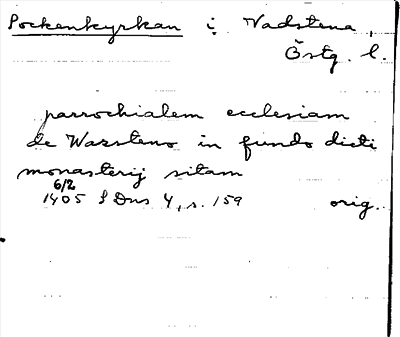 Sockenkyrkan i Vadstena,
Östg. l.
parrochialem ecclesiam
de Wazsteno in fundo dicti
monasterij sitam
6/2
1405 S Dns 4, s. 159 orig.